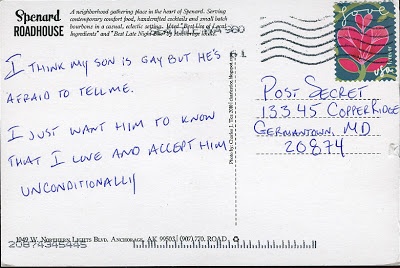 Spenard
ROADHOUSE
A neighborhood gathering place in the heart of Spenard. Serving
contemporary comfort food, handcrafted cocktails and small batch
bourbons in a casual, eclectic setting. Voted "Best Use of Local
Ingredients" and "Best Late Night
I THINK MY SON IS GAY BUT HE'S
AFRAID TO TELL ME.
I JUST WANT HIM TO KNOW
THAT I LOVE AND ACCEPT HIM
UNCONDITIONALLY
POST SECRET
13345 COPPER RIDGE
GERMANTOWN, MD
20874
USA
Photo by Charles
1049 W. Northern Lights Blvd. Anchorage, AK 99503 (907) 770. ROAD
20874345445